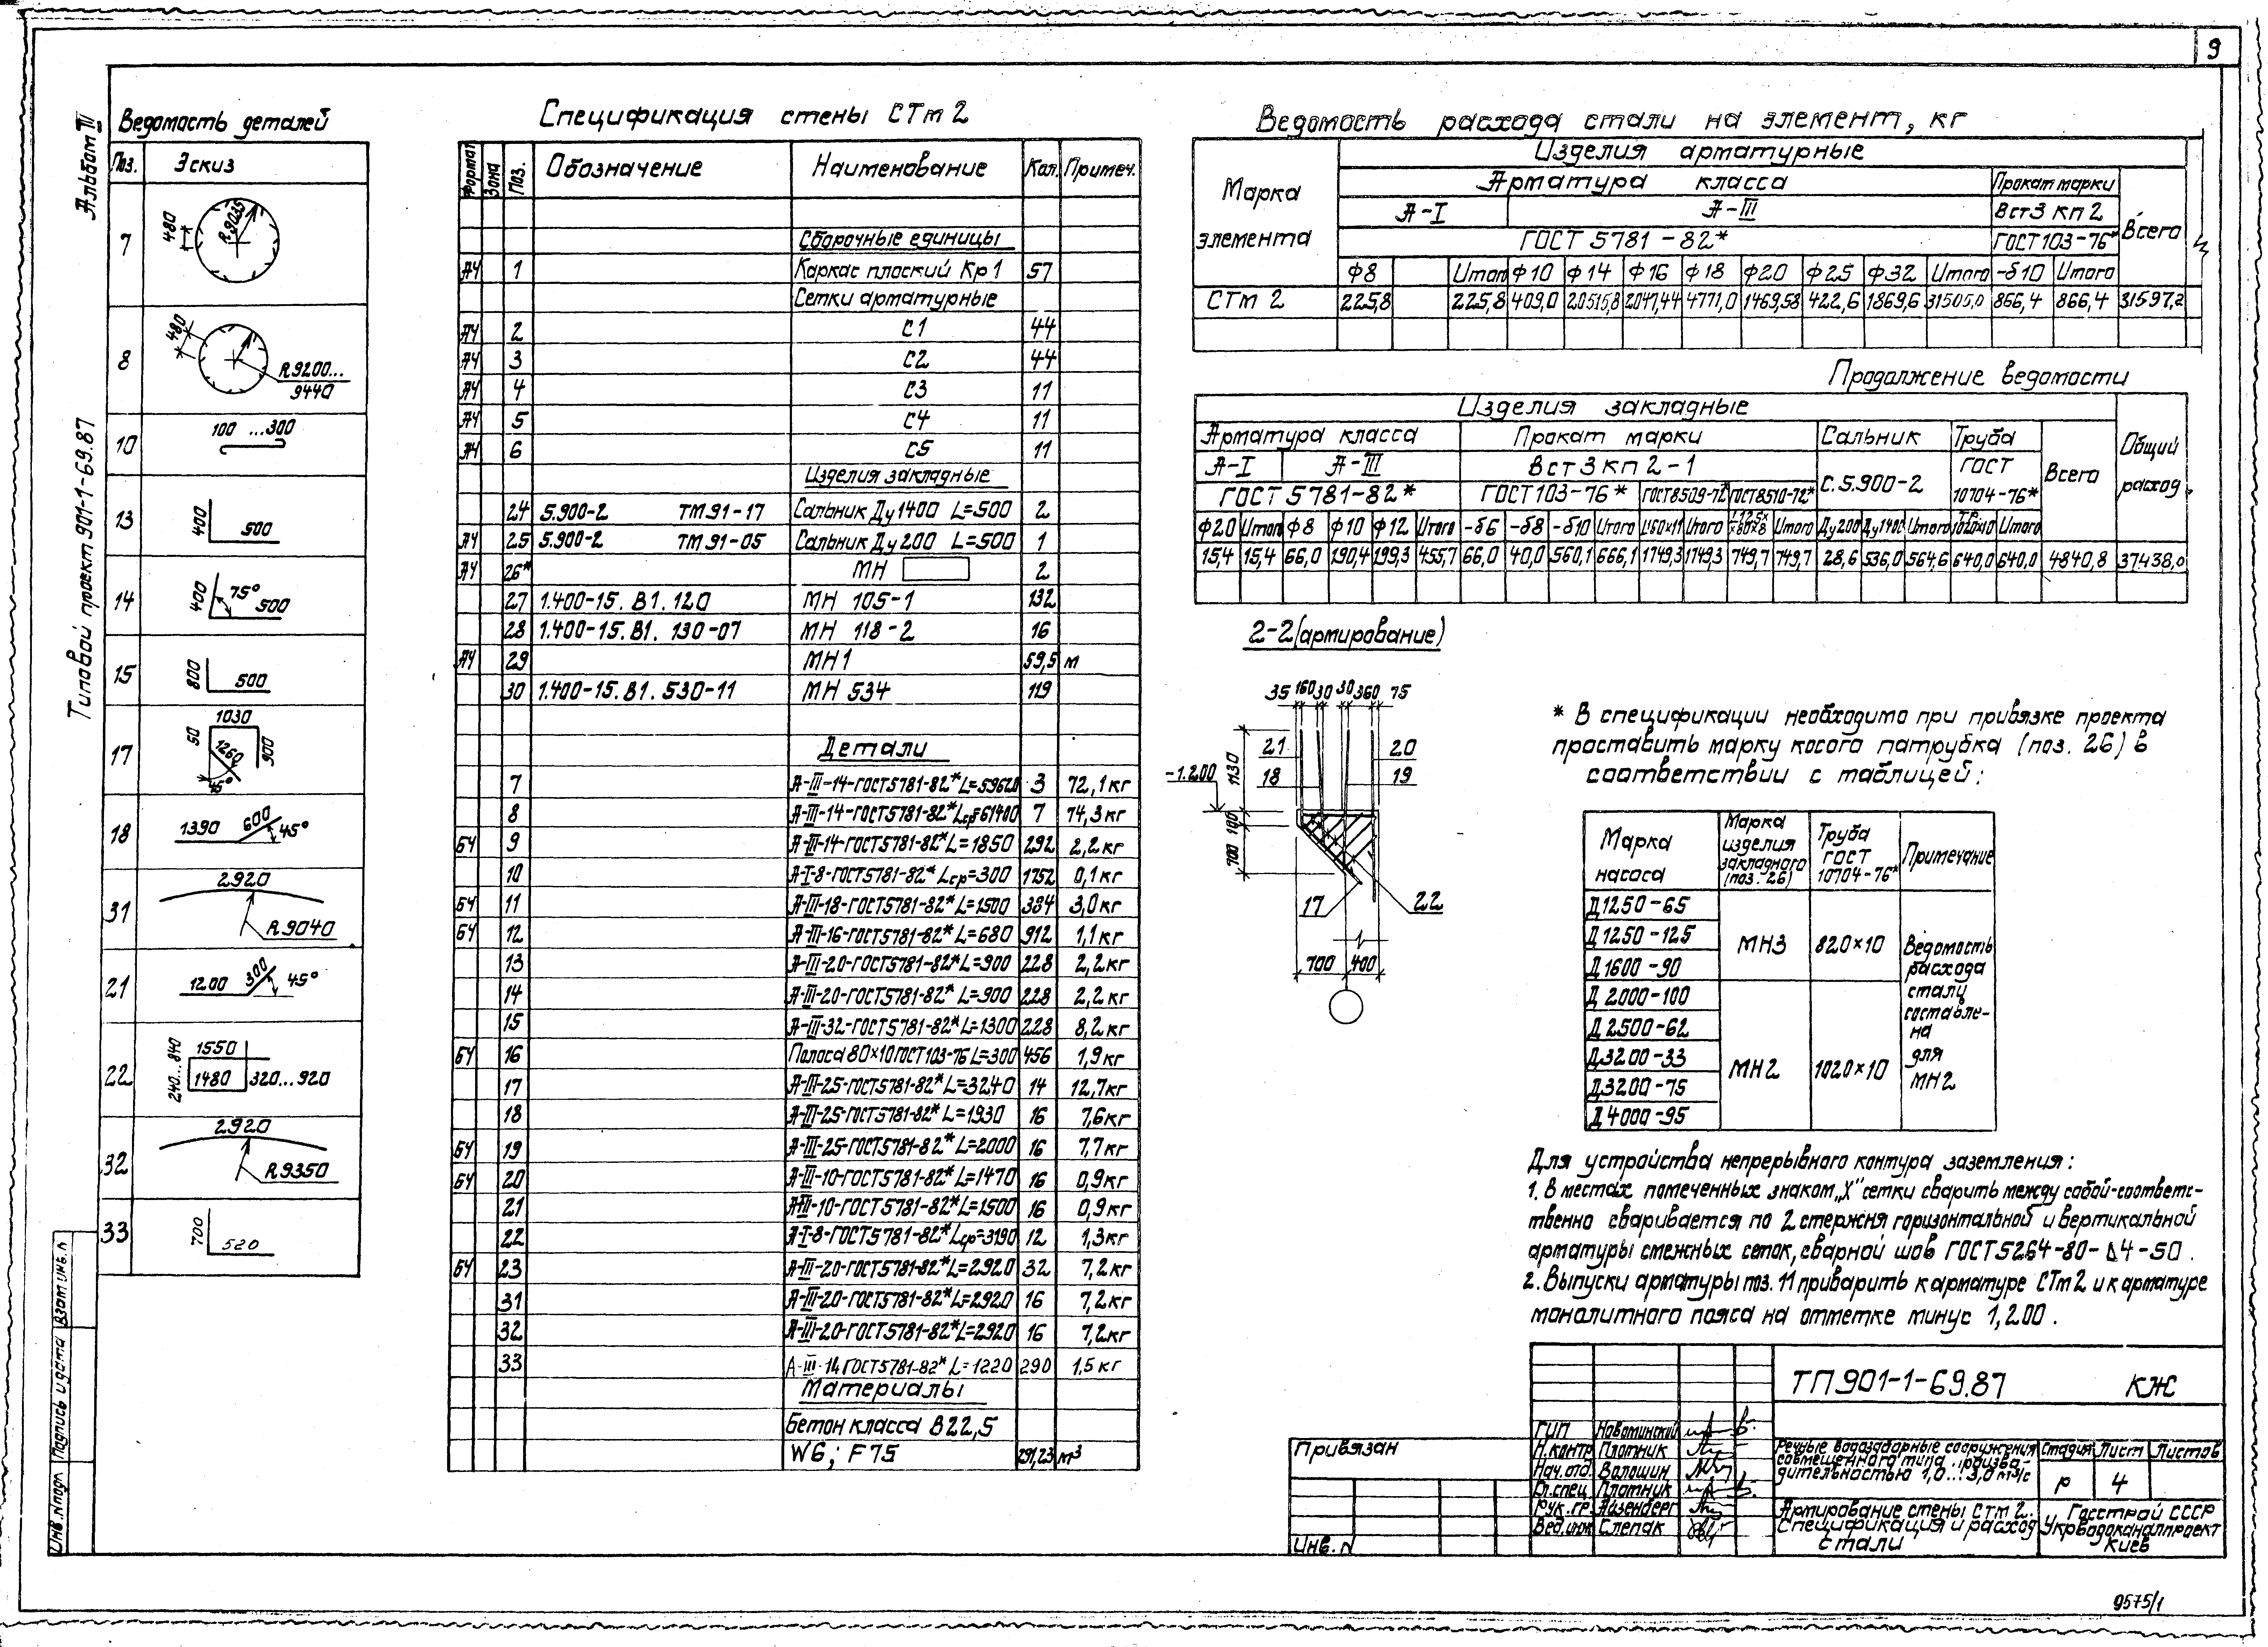 9
Альбом III
Типовой проект 901-1-69.87
Ведомость деталей
Поз. Эскиз
7 480 R9035
8 480 R9200... 9440
10 100 ...300
13 400 500
14 400 75° 500
15 800 500
17 50 1030 1260 900 45°
18 1390 600 45°
31 2920 R9040
21 1200 300 45°
22 240...840 1550 1480 320...920
32 2920 R9350
33 700 520
Спецификация стены СТм 2
Формат Зона Поз. Обозначение Наименование Кол. Примеч.
Сборочные единицы
А4 1 Каркас плоский Кр1 57
Сетки арматурные
А4 2 С1 44
А4 3 С2 44
А4 4 С3 11
А4 5 С4 11
А4 6 С5 11
Изделия закладные
24 5.900-2 ТМ91-17 Сальник Ду1400 L=500 2
А4 25 5.900-2 ТМ91-05 Сальник Ду200 L=500 1
А4 26* МН 2
27 1.400-15. В1. 120 МН 105-1 132
28 1.400-15. В1. 130-07 МН 118-2 16
А4 29 МН1 59,5 м
30 1.400-15. В1. 530-11 МН 534 119
Детали
7 А-III-14-ГОСТ5781-82* L=59620 3 72,1кг
8 А-III-14-ГОСТ5781-82* Lср=61400 7 74,3кг
БЧ 9 А-III-14-ГОСТ5781-82* L=1850 292 2,2кг
10 А-I-8-ГОСТ5781-82* Lср=300 1752 0,1кг
БЧ 11 А-III-18-ГОСТ5781-82* L=1500 384 3,0кг
БЧ 12 А-III-16-ГОСТ5781-82* L=680 912 1,1кг
13 А-III-20-ГОСТ5781-82* L=900 228 2,2кг
14 А-III-20-ГОСТ5781-82* L=900 228 2,2кг
15 А-III-32-ГОСТ5781-82* L=1300 228 8,2кг
БЧ 16 Полоса 80×10 ГОСТ103-76 L=300 456 1,9кг
17 А-III-25-ГОСТ5781-82* L=3240 14 12,7кг
18 А-III-25-ГОСТ5781-82* L=1930 16 7,6кг
БЧ 19 А-III-25-ГОСТ5781-82* L=2000 16 7,7кг
БЧ 20 А-III-10-ГОСТ5781-82* L=1470 16 0,9кг
21 А-III-10-ГОСТ5781-82* L=1500 16 0,9кг
22 А-I-8-ГОСТ5781-82* Lср=3190 12 1,3кг
БЧ 23 А-III-20-ГОСТ5781-82* L=2920 32 7,2кг
31 А-III-20-ГОСТ5781-82* L=2920 16 7,2кг
32 А-III-20-ГОСТ5781-82* L=2920 16 7,2кг
33 А-III-14 ГОСТ5781-82* L=1220 290 1,5кг
Материалы
Бетон класса В22,5
W6; F75 291,23 м³
Ведомость расхода стали на элемент, кг
Марка элемента
Изделия арматурные
Арматура класса Прокат марки Всего
А-I А-III Вст3 кп2
ГОСТ 5781-82* ГОСТ103-76*
Ф8 Итого Ф10 Ф14 Ф16 Ф18 Ф20 Ф25 Ф32 Итого -δ10 Итого
СТм 2 225,8 225,8 409,0 20515,8 2047,44 4771,0 1469,58 422,6 1869,6 31505,0 866,4 866,4 31597,2
Продолжение ведомости
Изделия закладные Общий расход
Арматура класса Прокат марки Сальник Труба Всего
А-I А-III Вст3кп2-1 с.5.900-2 ГОСТ 10704-76*
ГОСТ 5781-82* ГОСТ103-76* ГОСТ8509-72* ГОСТ8510-72*
Ф20 Итого Ф8 Ф10 Ф12 Итого -δ6 -δ8 -δ10 Итого Итого Итого Ду200 Ду1400 Итого 1020×10 Итого
15,4 15,4 66,0 190,4 199,3 455,7 66,0 40,0 560,1 666,1 1749,3 1749,3 749,7 749,7 28,6 536,0 564,6 640,0 640,0 4840,8 37438,0
2-2 (армирование)
35 160 30 30 360 75
21 20
18 19
-1.200
1130
100
700
17 22
700 400
* В спецификации необходимо при привязке проекта
проставить марку косого патрубка (поз. 26) в
соответствии с таблицей:
Марка насоса Марка изделия закладного (поз. 26) Труба ГОСТ 10704-76* Примечание
Д1250-65
Д1250-125 МН3 820×10
Д1600-90
Д2000-100
Д2500-62
Д3200-33 МН2 1020×10
Д3200-75
Д4000-95
Ведомость расхода стали составлена для МН2
Для устройства непрерывного контура заземления:
1. В местах помеченных знаком „Х" сетки сварить между собой-соответс-
твенно сваривается по 2 стержня горизонтальной и вертикальной
арматуры смежных сеток, сварной шов ГОСТ5264-80-Δ4-50.
2. Выпуски арматуры поз. 11 приварить к арматуре СТм2 и к арматуре
монолитного пояса на отметке минус 1,200.
ТП 901-1-69.87 КЖ
Привязан
Инв. n
ГИП Новоминский
Н.контр Плотник
Нач.отд. Волошин
Гл.спец Плотник
Рук.гр. Айзенберг
Вед.инж Слепак
Речные водозаборные сооружения
совмещенного типа произво-
дительностью 1,0...3,0 м³/с
Стадия Лист Листов
р 4
Армирование стены СТм 2.
Спецификация и расход
стали
Госстрой СССР
Укрводоканалпроект
Киев
Инв. N подл. Подпись и дата Взам инв. n
9575/1